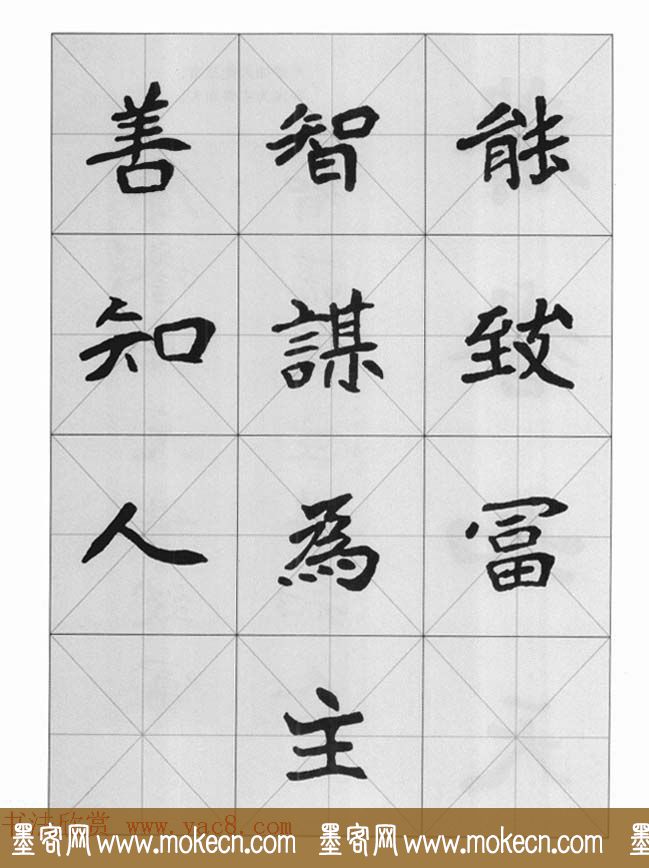 能致冨
智謀為主
善知人
书法欣赏 www.yac8.com
墨客网 www.mokecn.com 墨客网 www.mokecn.com